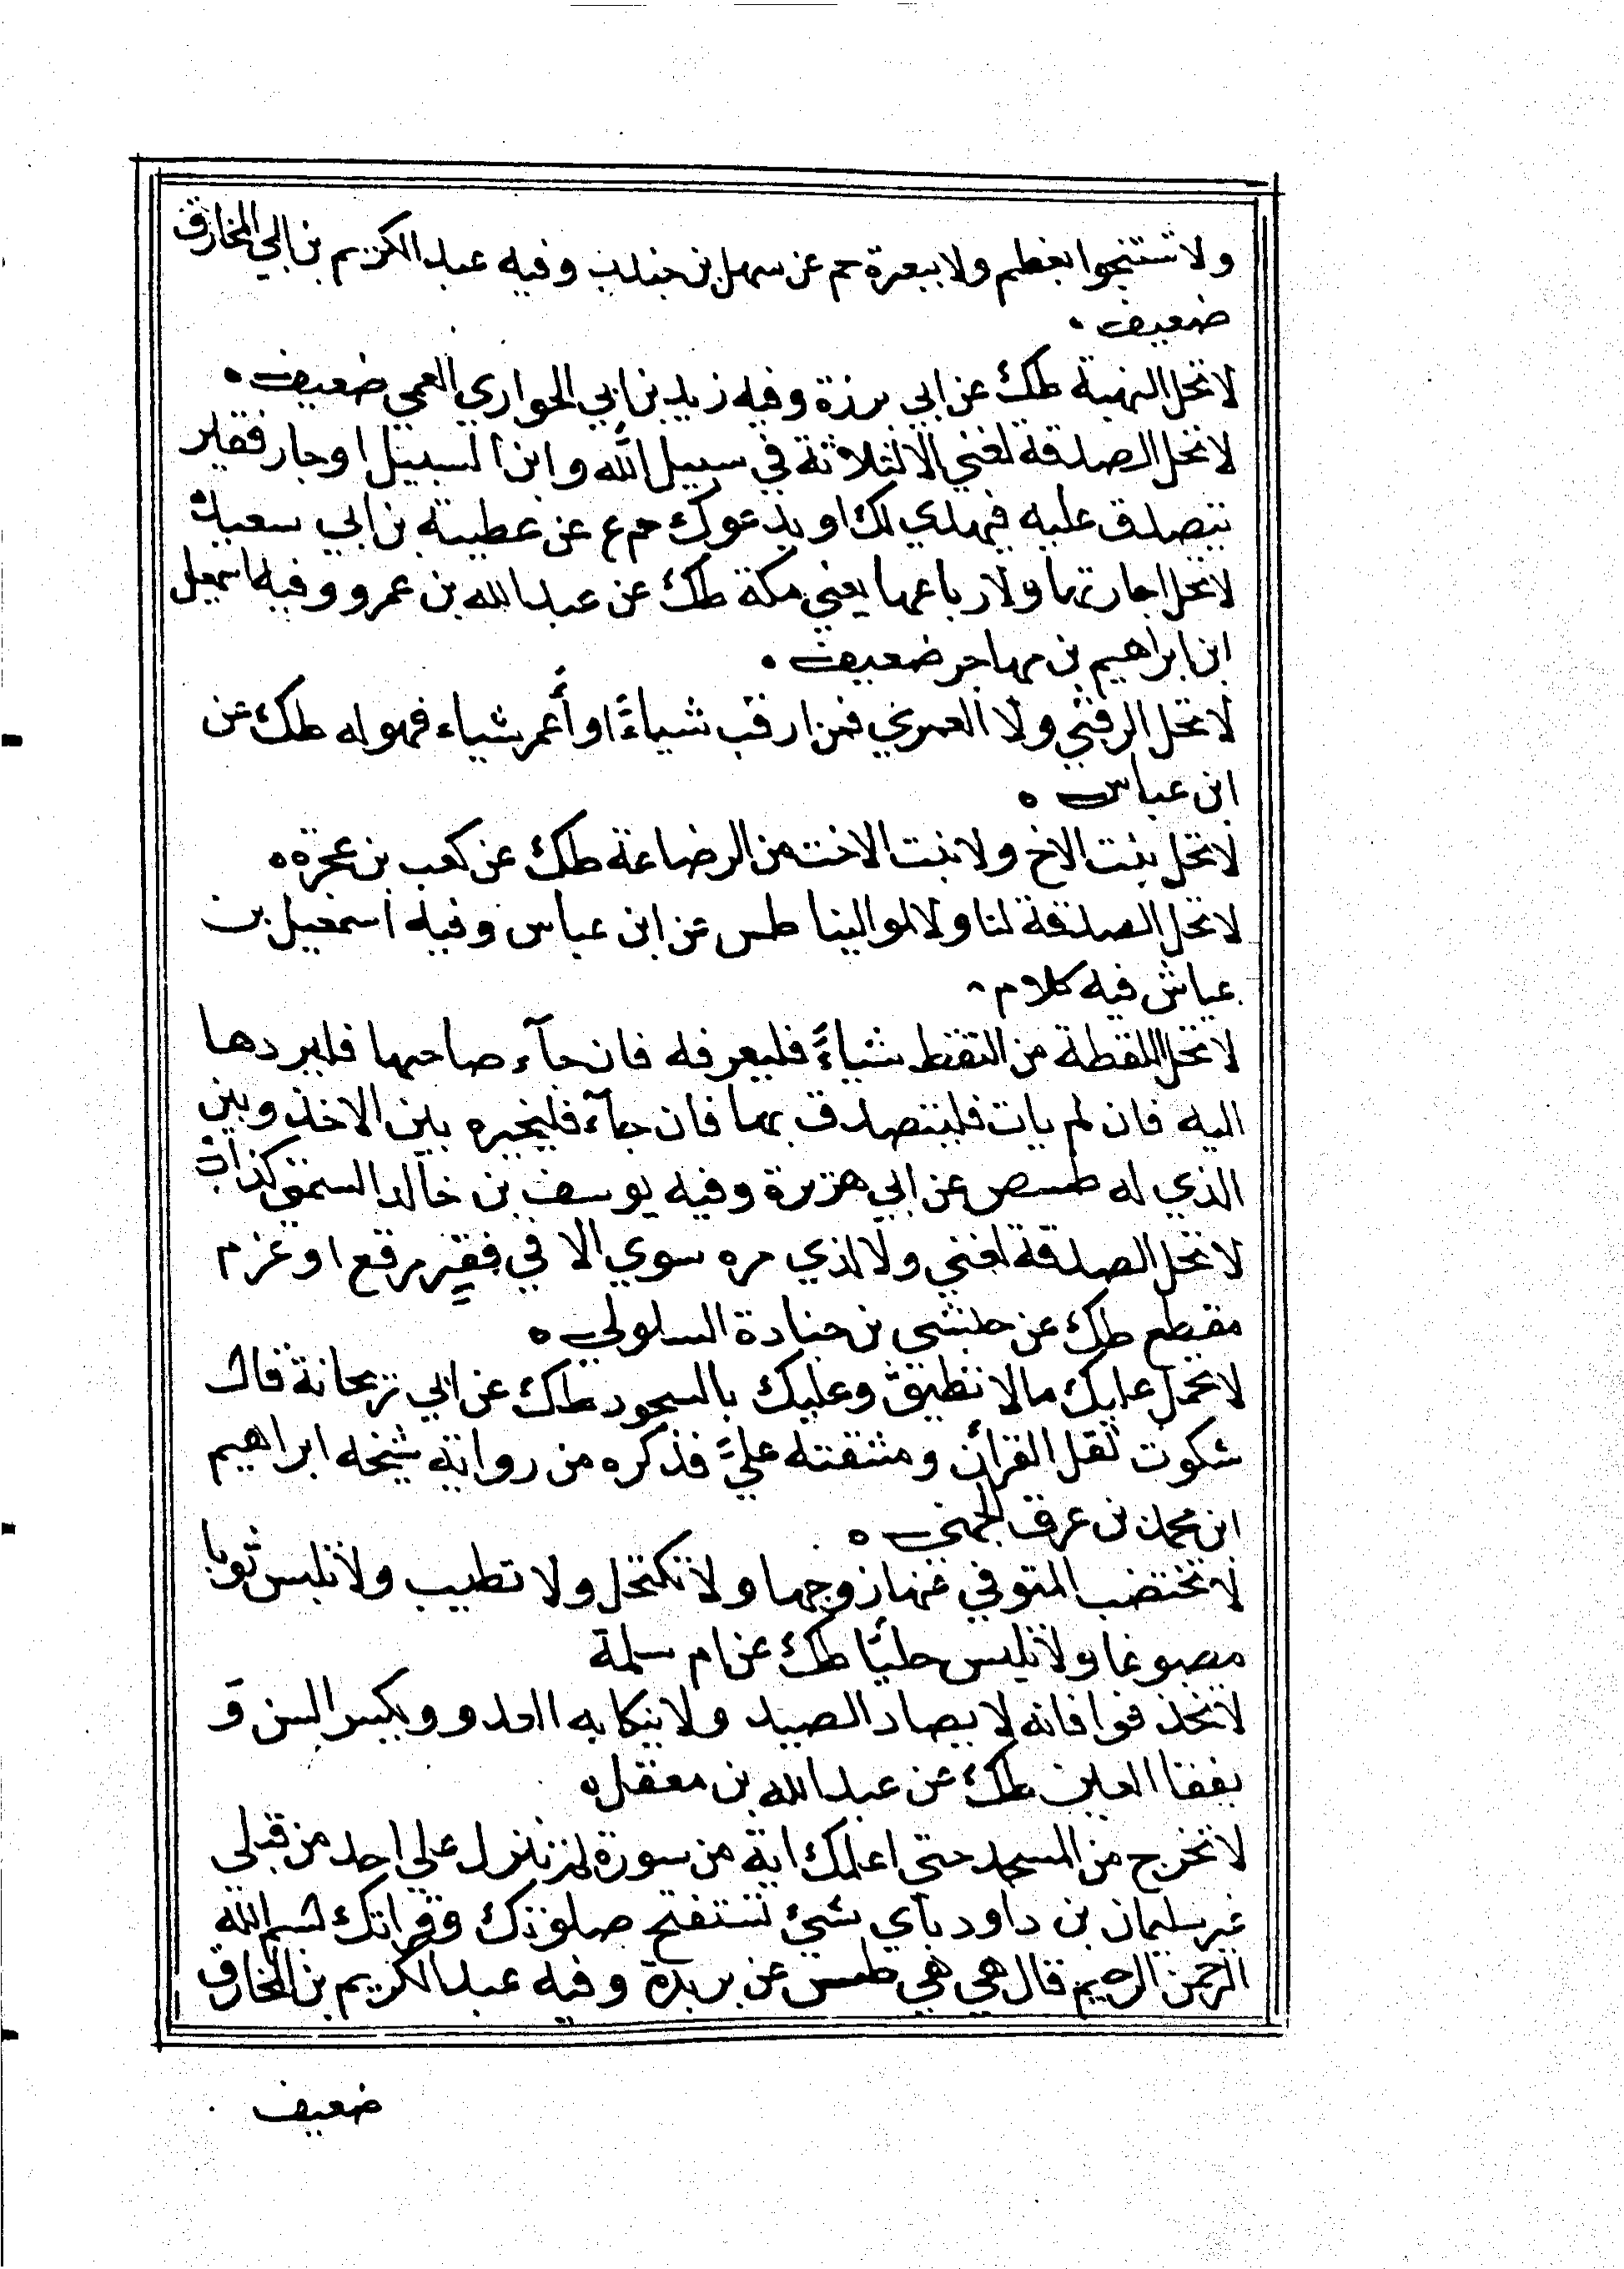 ولا تستنجوا بعظم ولا ببعرة حم عن سهل بن حنيف وفيه عبد الكريم بن ابي المخارق
ضعيف
لا تحل النهبة طك عن ابي برزة وفيه زيد بن ابي الحواري العمي ضعيف
لا تحل الصدقة لغني الا لثلاثة في سبيل الله وابن السبيل او جار فقير
يتصدق عليه فيهدي لك او يدعوك حم ع عن عطية بن ابي سعيد
لا تحل اجارتها ولا رباعها يعني مكة طك عن عبد الله بن عمرو وفيه اسمعيل
ابن ابراهيم بن مهاجر ضعيف
لا تحل الرقبي ولا العمري فمن ارقب شياءً او أعمر شياء فهو له طك عن
ابن عباس
لا تحل بنت الاخ ولا بنت الاخت من الرضاعة طك عن كعب بن عجرة
لا تحل الصدقة لنا ولا لموالينا طس عن ابن عباس وفيه اسمعيل بن
عياش فيه كلام
لا تحل اللقطة من التقط شياءً فليعرفه فان جآء صاحبها فليردها
اليه فان لم يات فليتصدق بها فان جآء فليخيره بين الاخذ وبين
الذي له طسص عن ابي هريرة وفيه يوسف بن خالد السمتي كذاب
لا تحل الصدقة لغني ولا لذي مره سوي الا في فقير مرقع او غرم
مقطع طك عن حبشي بن جنادة السلولي
لا تحمل عليك ما لا تطيق وعليك بالسجود طك عن ابي ريحانة قال
شكوت ثقل القرآن ومشقته عليَّ فذكره من رواية شيخه ابراهيم
ابن محمد بن عرق الحمصي
لا تختضب المتوفي عنها زوجها ولا تكتحل ولا تطيب ولا تلبس ثوبا
مصبوغا ولا تلبس حليًا طك عن ام سلمة
لا تخذفوا فانه لا يصاد الصيد ولا ينكا به العدو ويكسر السن و
يفقا العين طك عن عبد الله بن مغفل
لا تخرج من المسجد حتى اعلمك اية من سورة لم تنزل علي احد من قبلي
غير سليمان بن داود بآي شئ تستفتح صلوتك وقراتك بسم الله
الرحمن الرحيم قال هي هي طس عن بريدة وفيه عبد الكريم بن المخارق
ضعيف